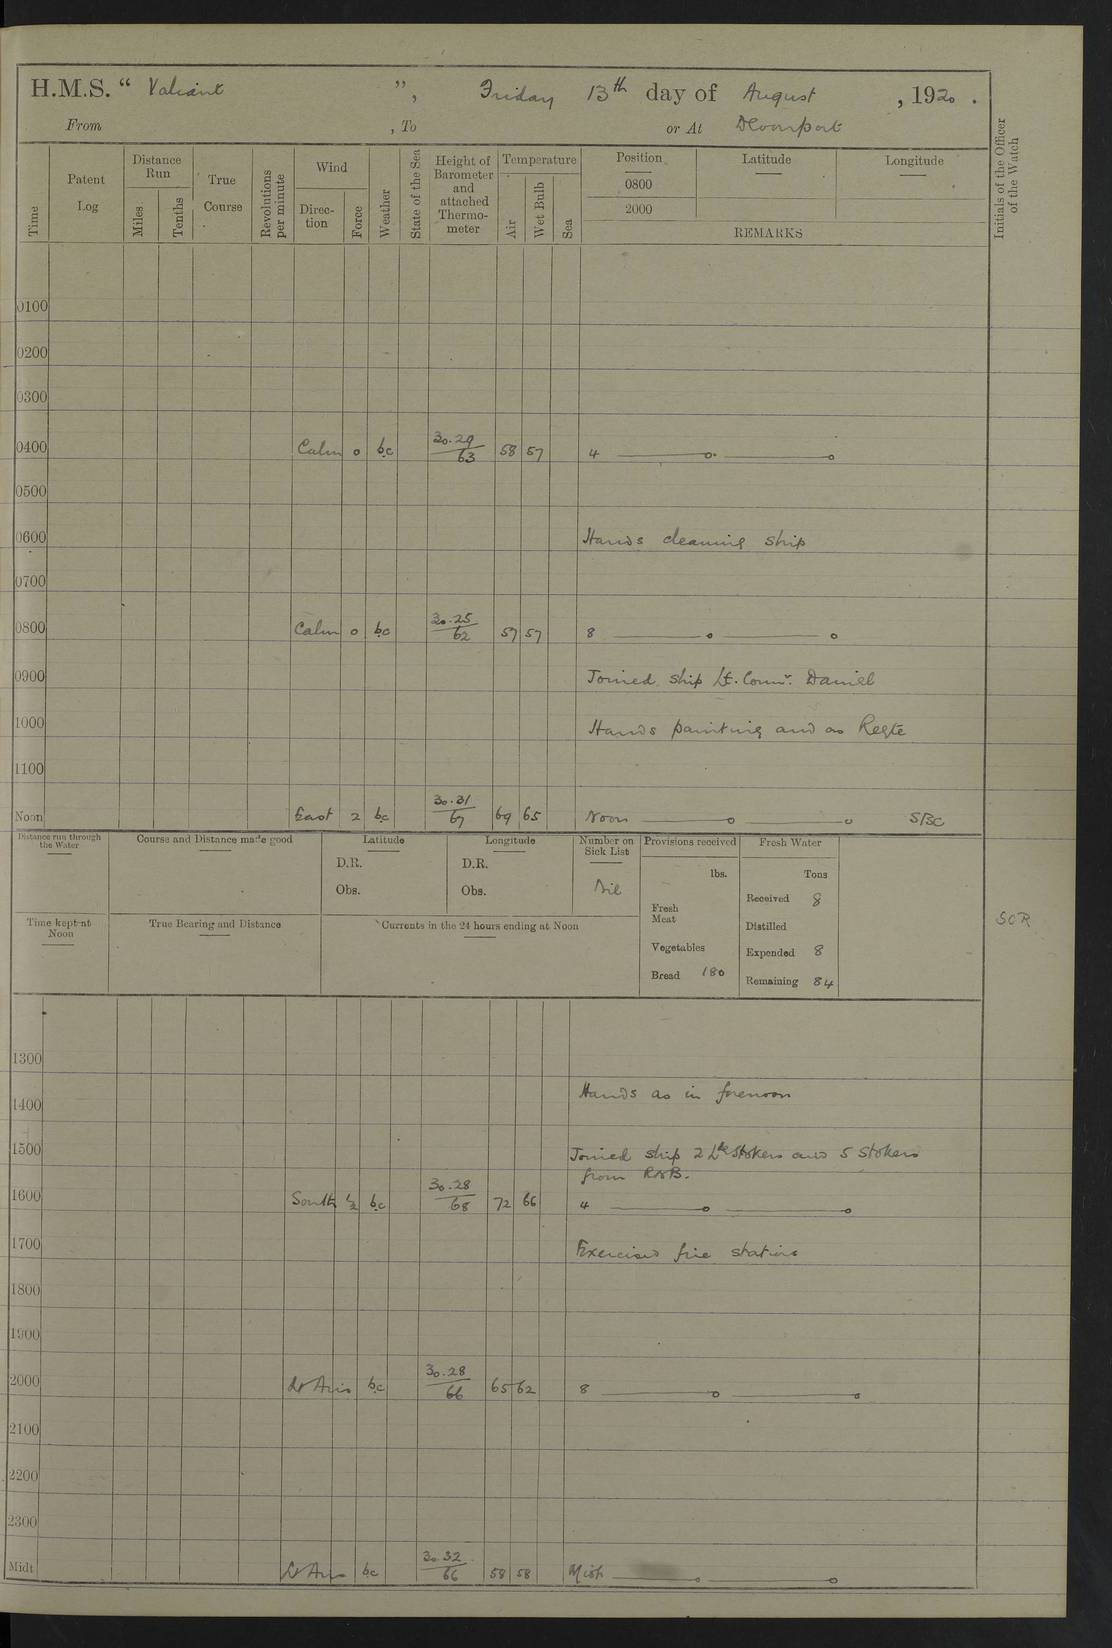 H.M.S. “ Valiant ”, Friday 13th day of August , 1920 .
From , To or At Devonport
Time
Patent Log
Distance Run
Miles
Tenths
True Course
Revolutions per minute
Wind
Direction
Force
Weather
State of the Sea
Height of Barometer and attached Thermometer
Temperature
Air
Wet Bulb
Sea
Position
0800
2000
Latitude
Longitude
REMARKS
Initials of the Officer of the Watch
0100
0200
0300
0400 Calm 0 bc 30.29/63 58 57 4
0500
0600 Hands cleaning ship
0700
0800 Calm 0 bc 30.25/62 57 57 8
0900 Joined ship Lt. Comr. Daniel
1000 Hands painting and as Reqte
1100
Noon East 2 bc 30.31/67 69 65 Noon SBC
Distance run through the Water
Course and Distance made good
Latitude
D.R.
Obs.
Longitude
D.R.
Obs.
Number on Sick List
Nil
Provisions received
lbs.
Fresh Meat
Vegetables
Bread 180
Fresh Water
Tons
Received 8
Distilled
Expended 8
Remaining 84
SCR
Time kept at Noon
True Bearing and Distance
Currents in the 24 hours ending at Noon
1300
1400 Hands as in forenoon
1500 Joined ship 2 Ldg Stokers and 5 Stokers
from RNB.
1600 South ½ bc 30.28/68 72 66 4
1700 Exercised fire stations
1800
1900
2000 Lt Airs bc 30.28/66 65 62 8
2100
2200
2300
Midt Lt Airs bc 30.32/66 58 58 Midt